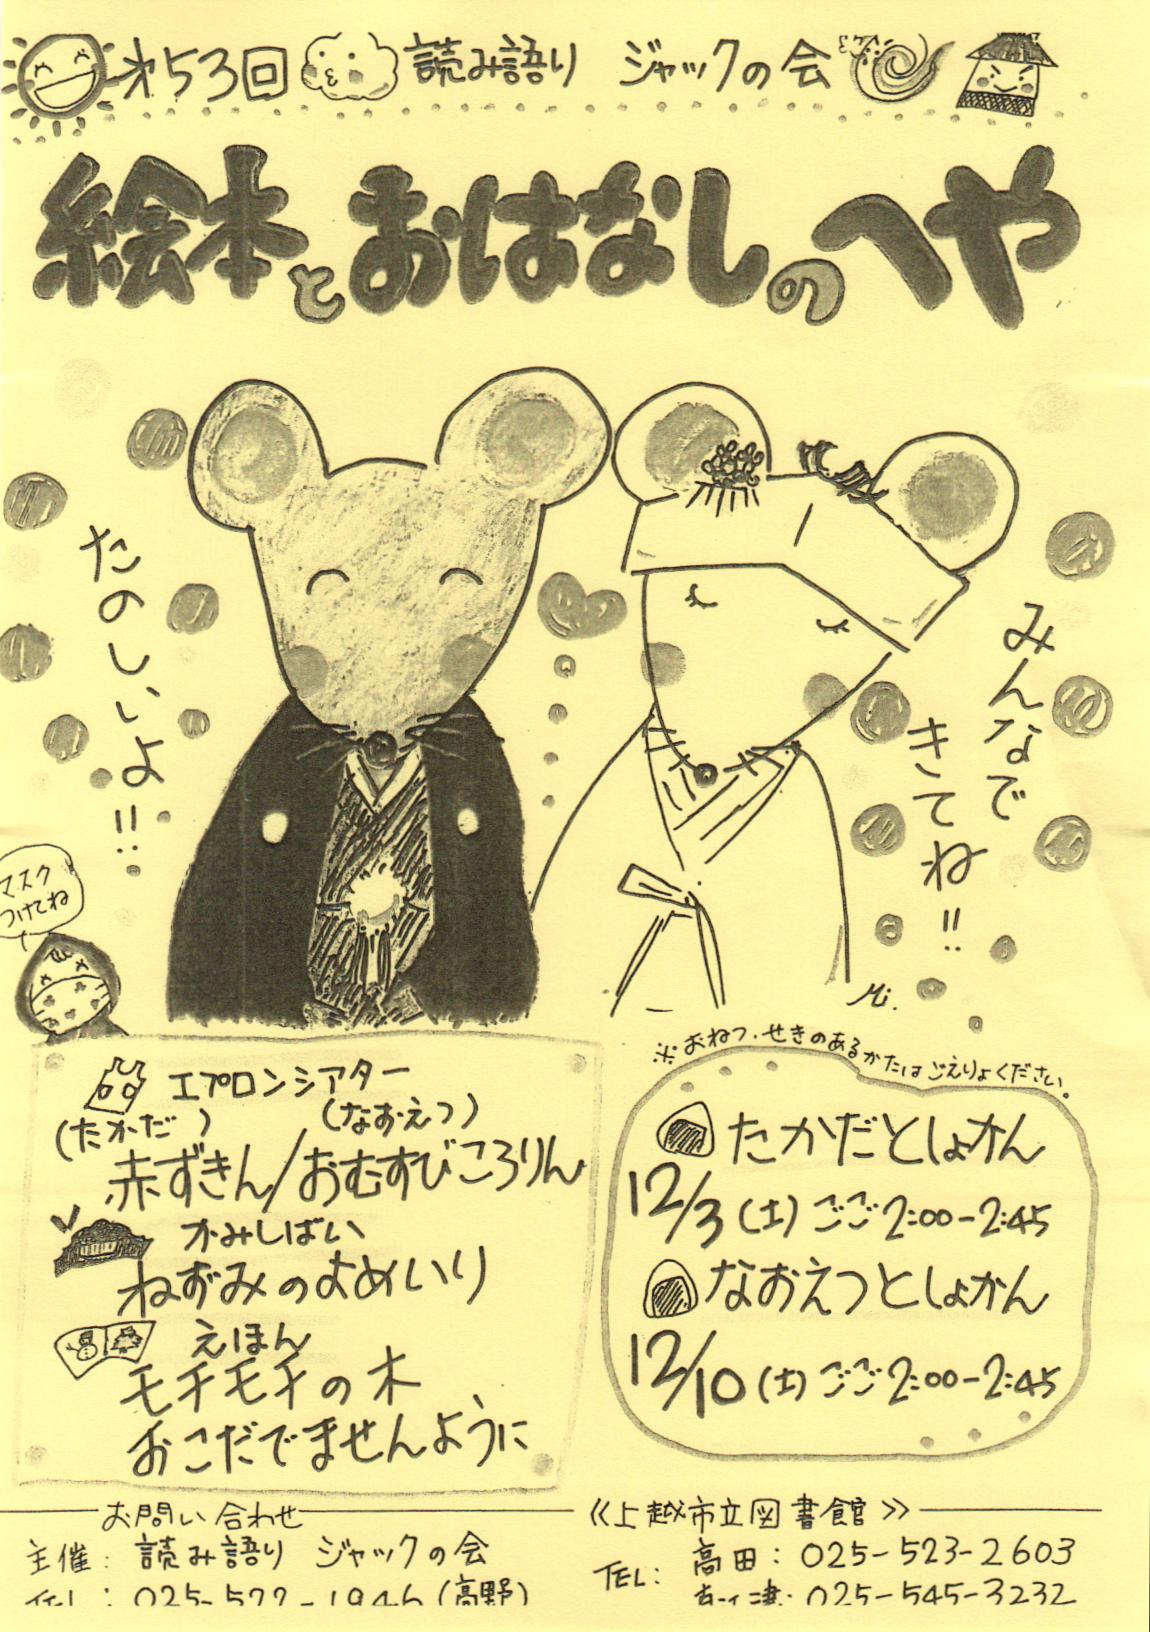 オ53回 読み語り ジャックの会
絵本とおはなしのへや
たのしいよ!!
みんなで
きてね!!
マスク
つけてね
Mi.
※おねつ・せきのあるかたはごえりょください。
エプロンシアター
(たかだ) (なおえつ)
赤ずきん/おむすびころりん
かみしばい
ねずみのよめいり
えほん
モチモチの木
おこだでませんように
たかだとしょかん
12/3(土)ごご2:00-2:45
なおえつとしょかん
12/10(土)ごご2:00-2:45
お問い合わせ
主催: 読み語り ジャックの会
TEL: 025-522-1946(高野)
《上越市立図書館》
TEL: 高田: 025-523-2603
直江津: 025-545-3232